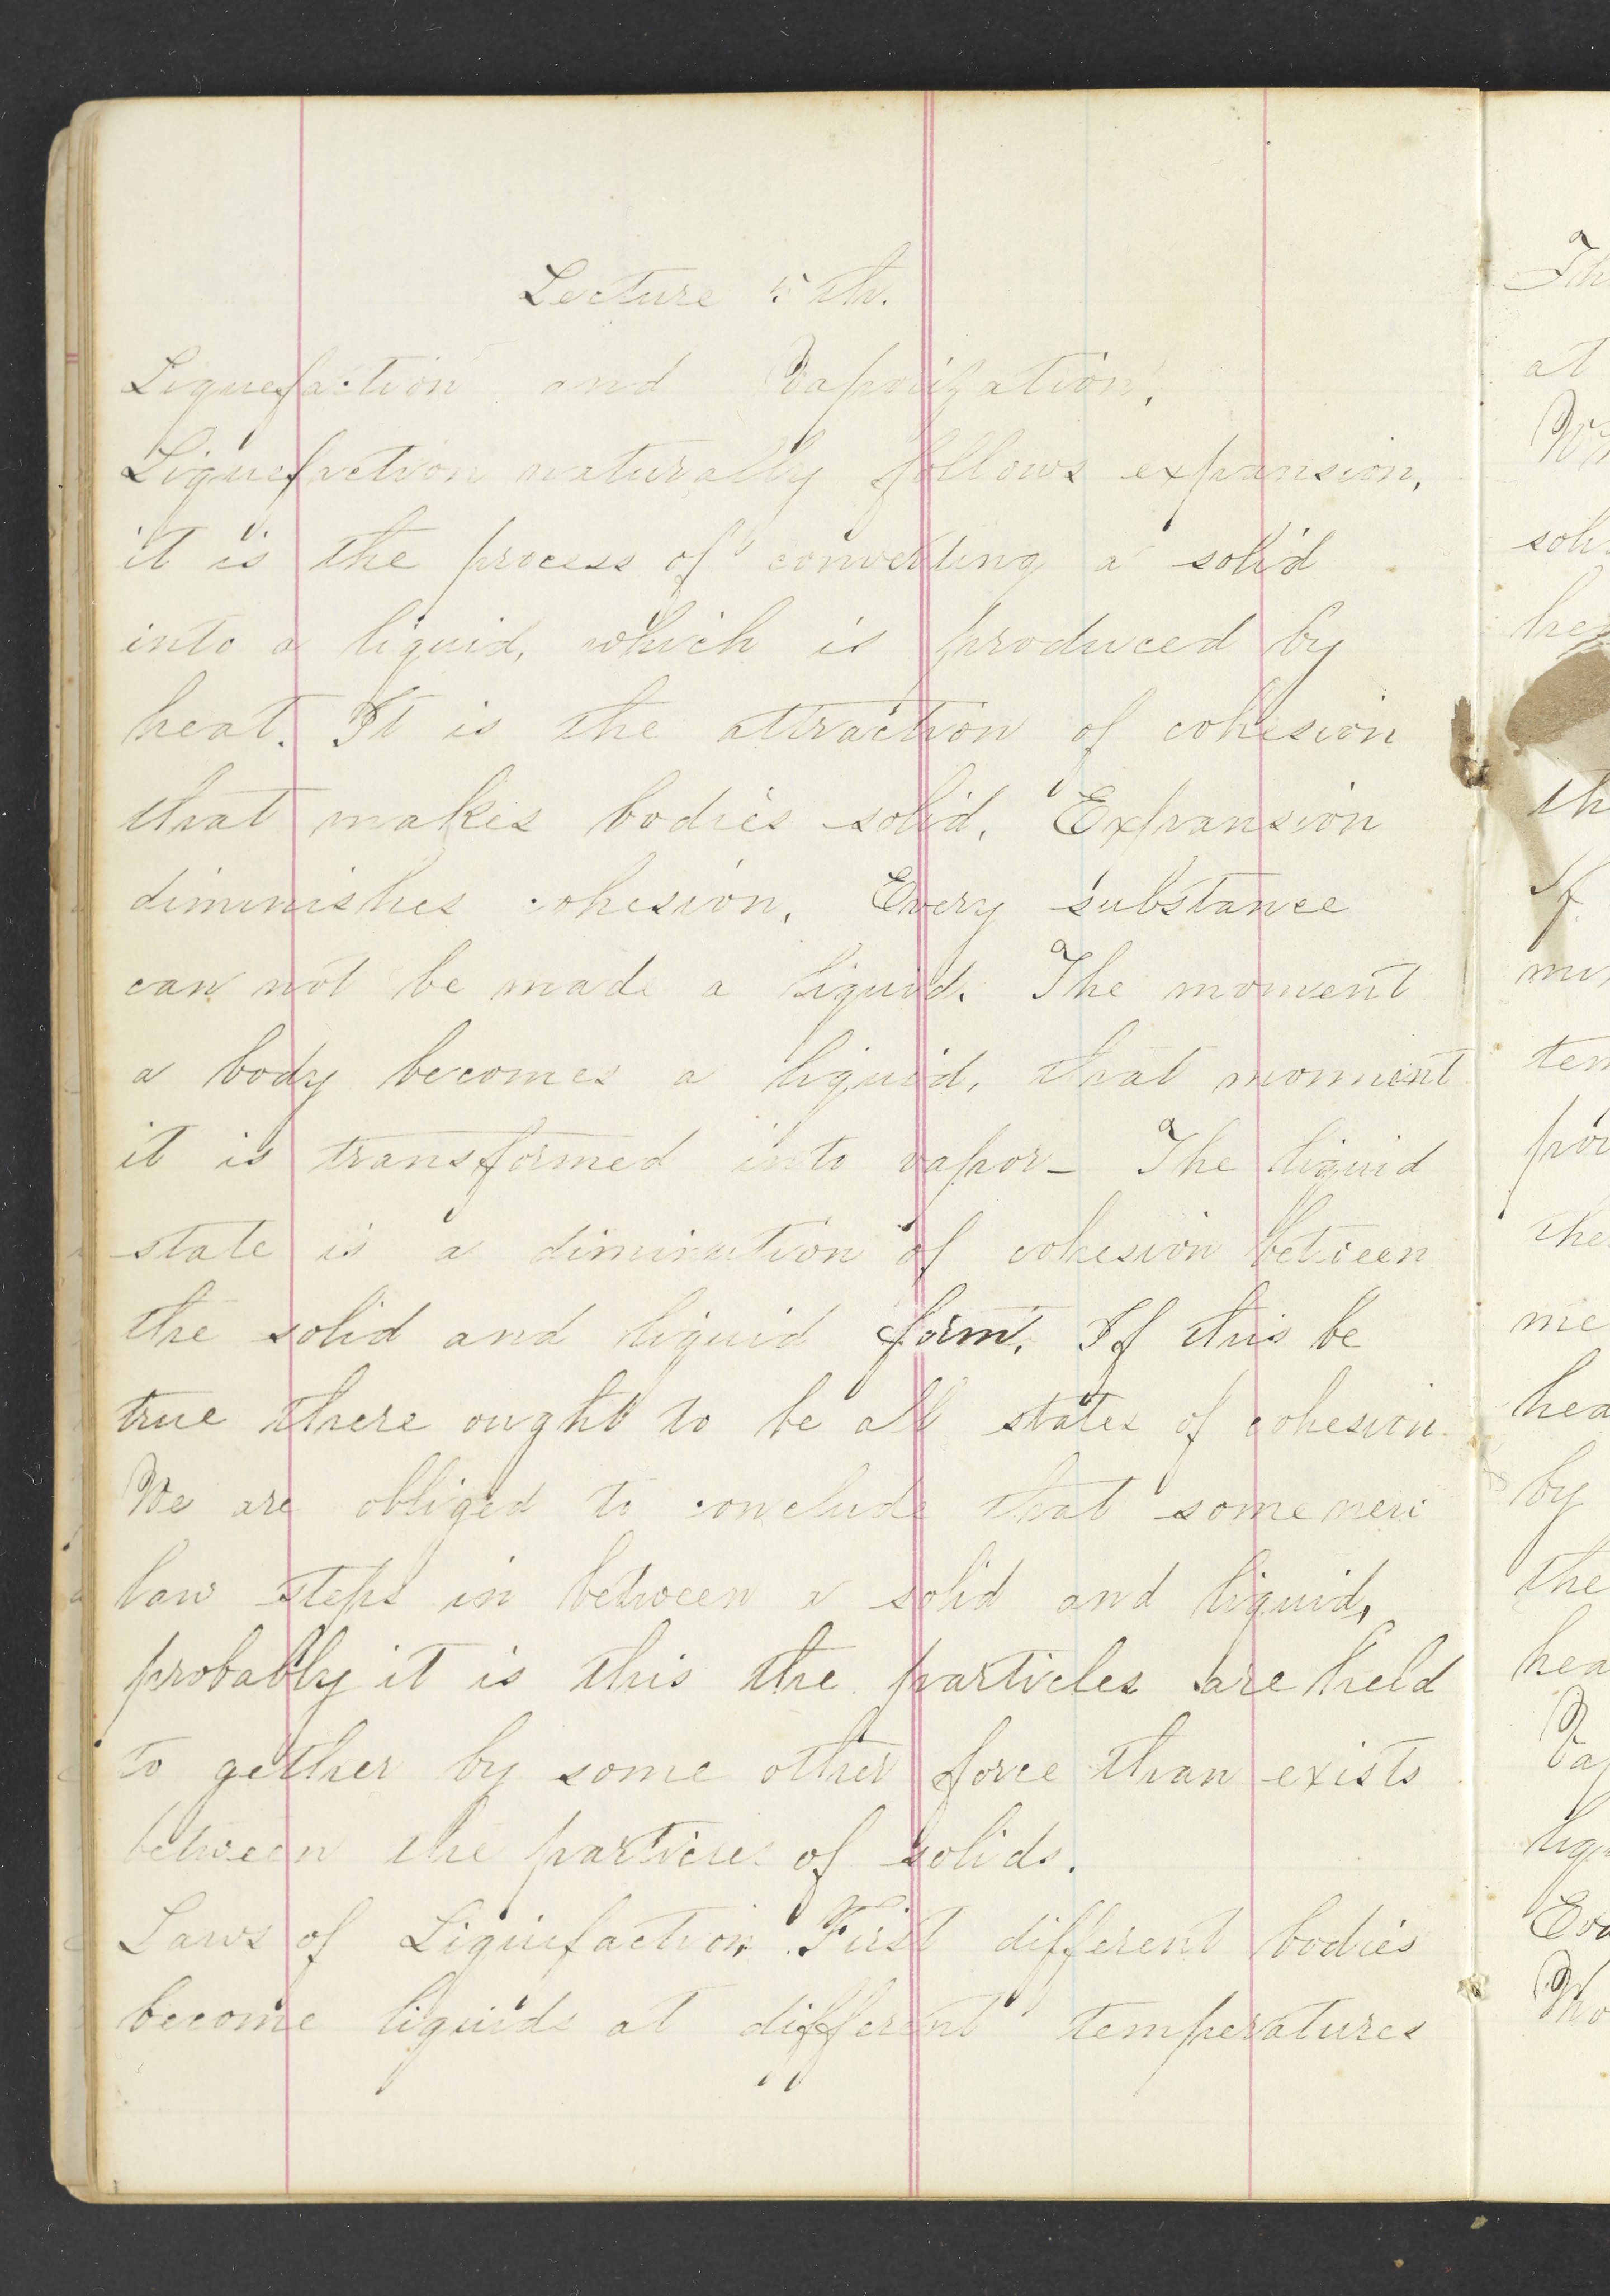 Lecture 5th.
Liquefaction and Vaporization.
Liquefaction naturally follows expansion,
it is the process of converting a solid
into a liquid, which is produced by
heat. It is the attraction of cohesion
that makes bodies solid. Expansion
diminishes cohesion. Every substance
can not be made a liquid. The moment
a body becomes a liquid, that moment
it is transformed into vapor_ The liquid
state is a diminution of cohesion between
the solid and liquid form. If this be
true there ought to be all states of cohesion.
We are obliged to conclude that some new
law steps in between a solid and liquid,
probably it is this the particles are held
to gether by some other force than exists
between the particles of solids.
Laws of Liquefaction. First different bodies
become liquids at different temperatures